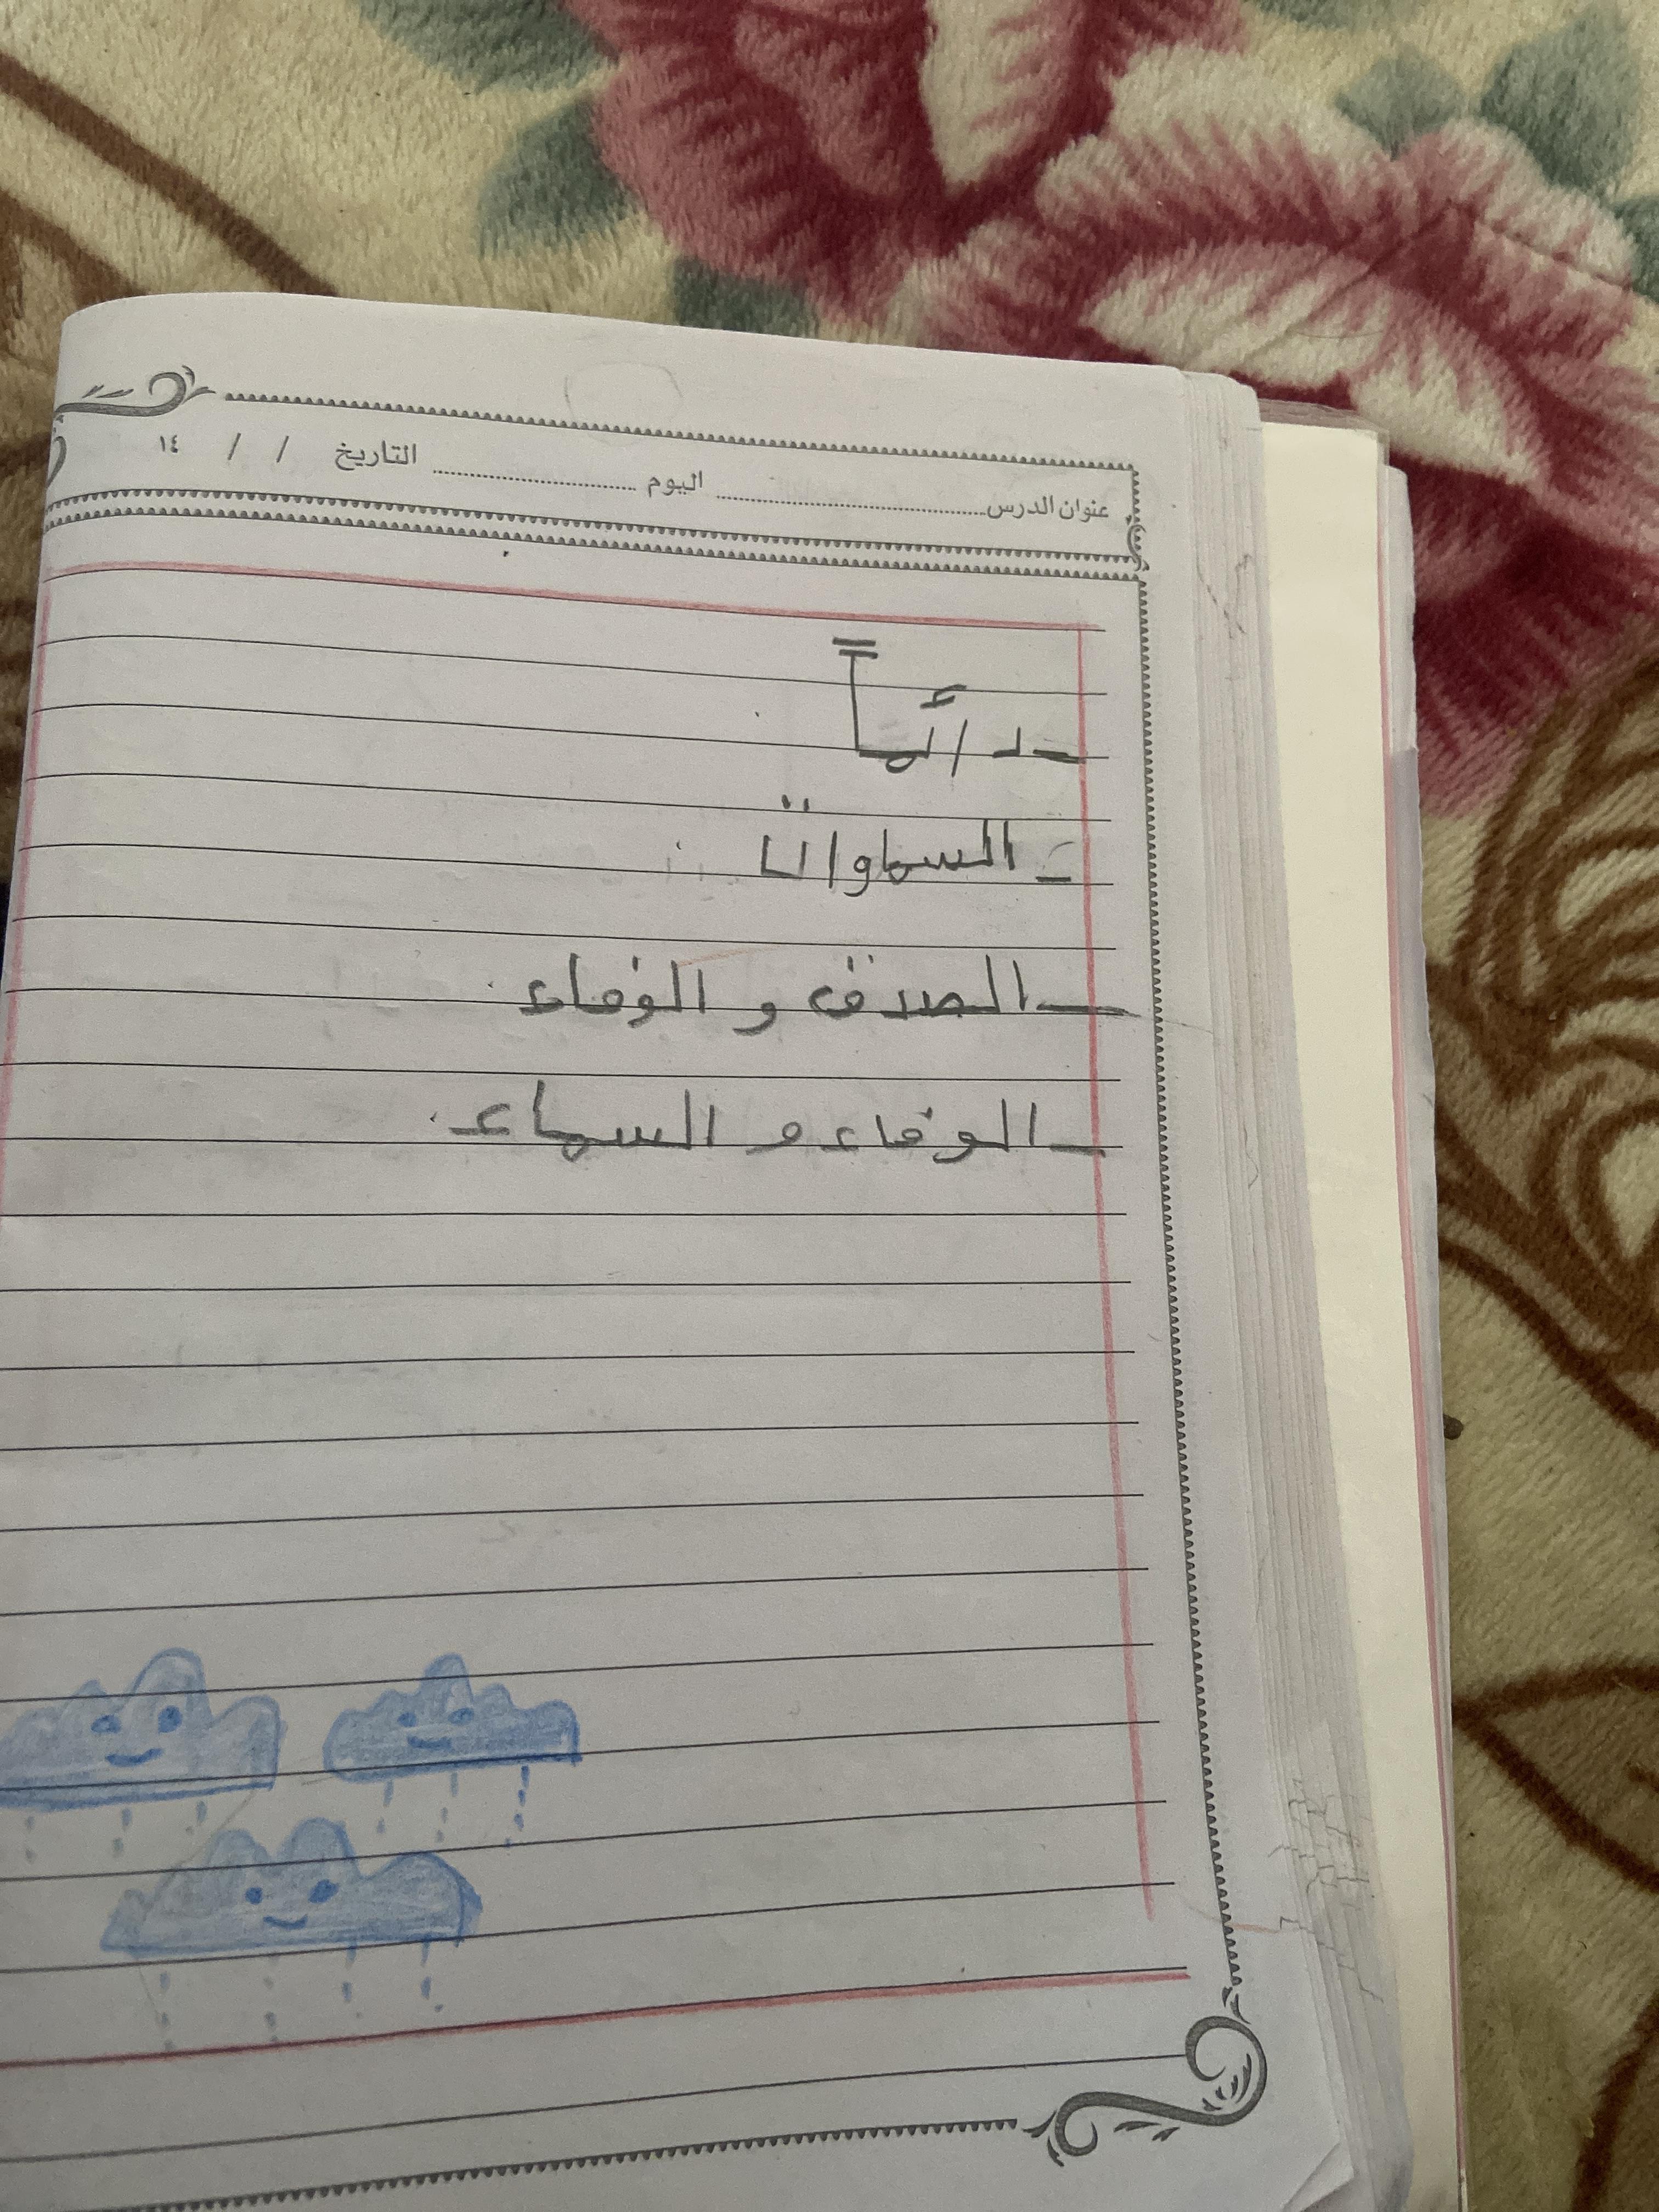 عنوان الدرس اليوم التاريخ / / ١٤
- دائماً
- السماوات
- الصدق و الوفاء
- الوفاء و السماء